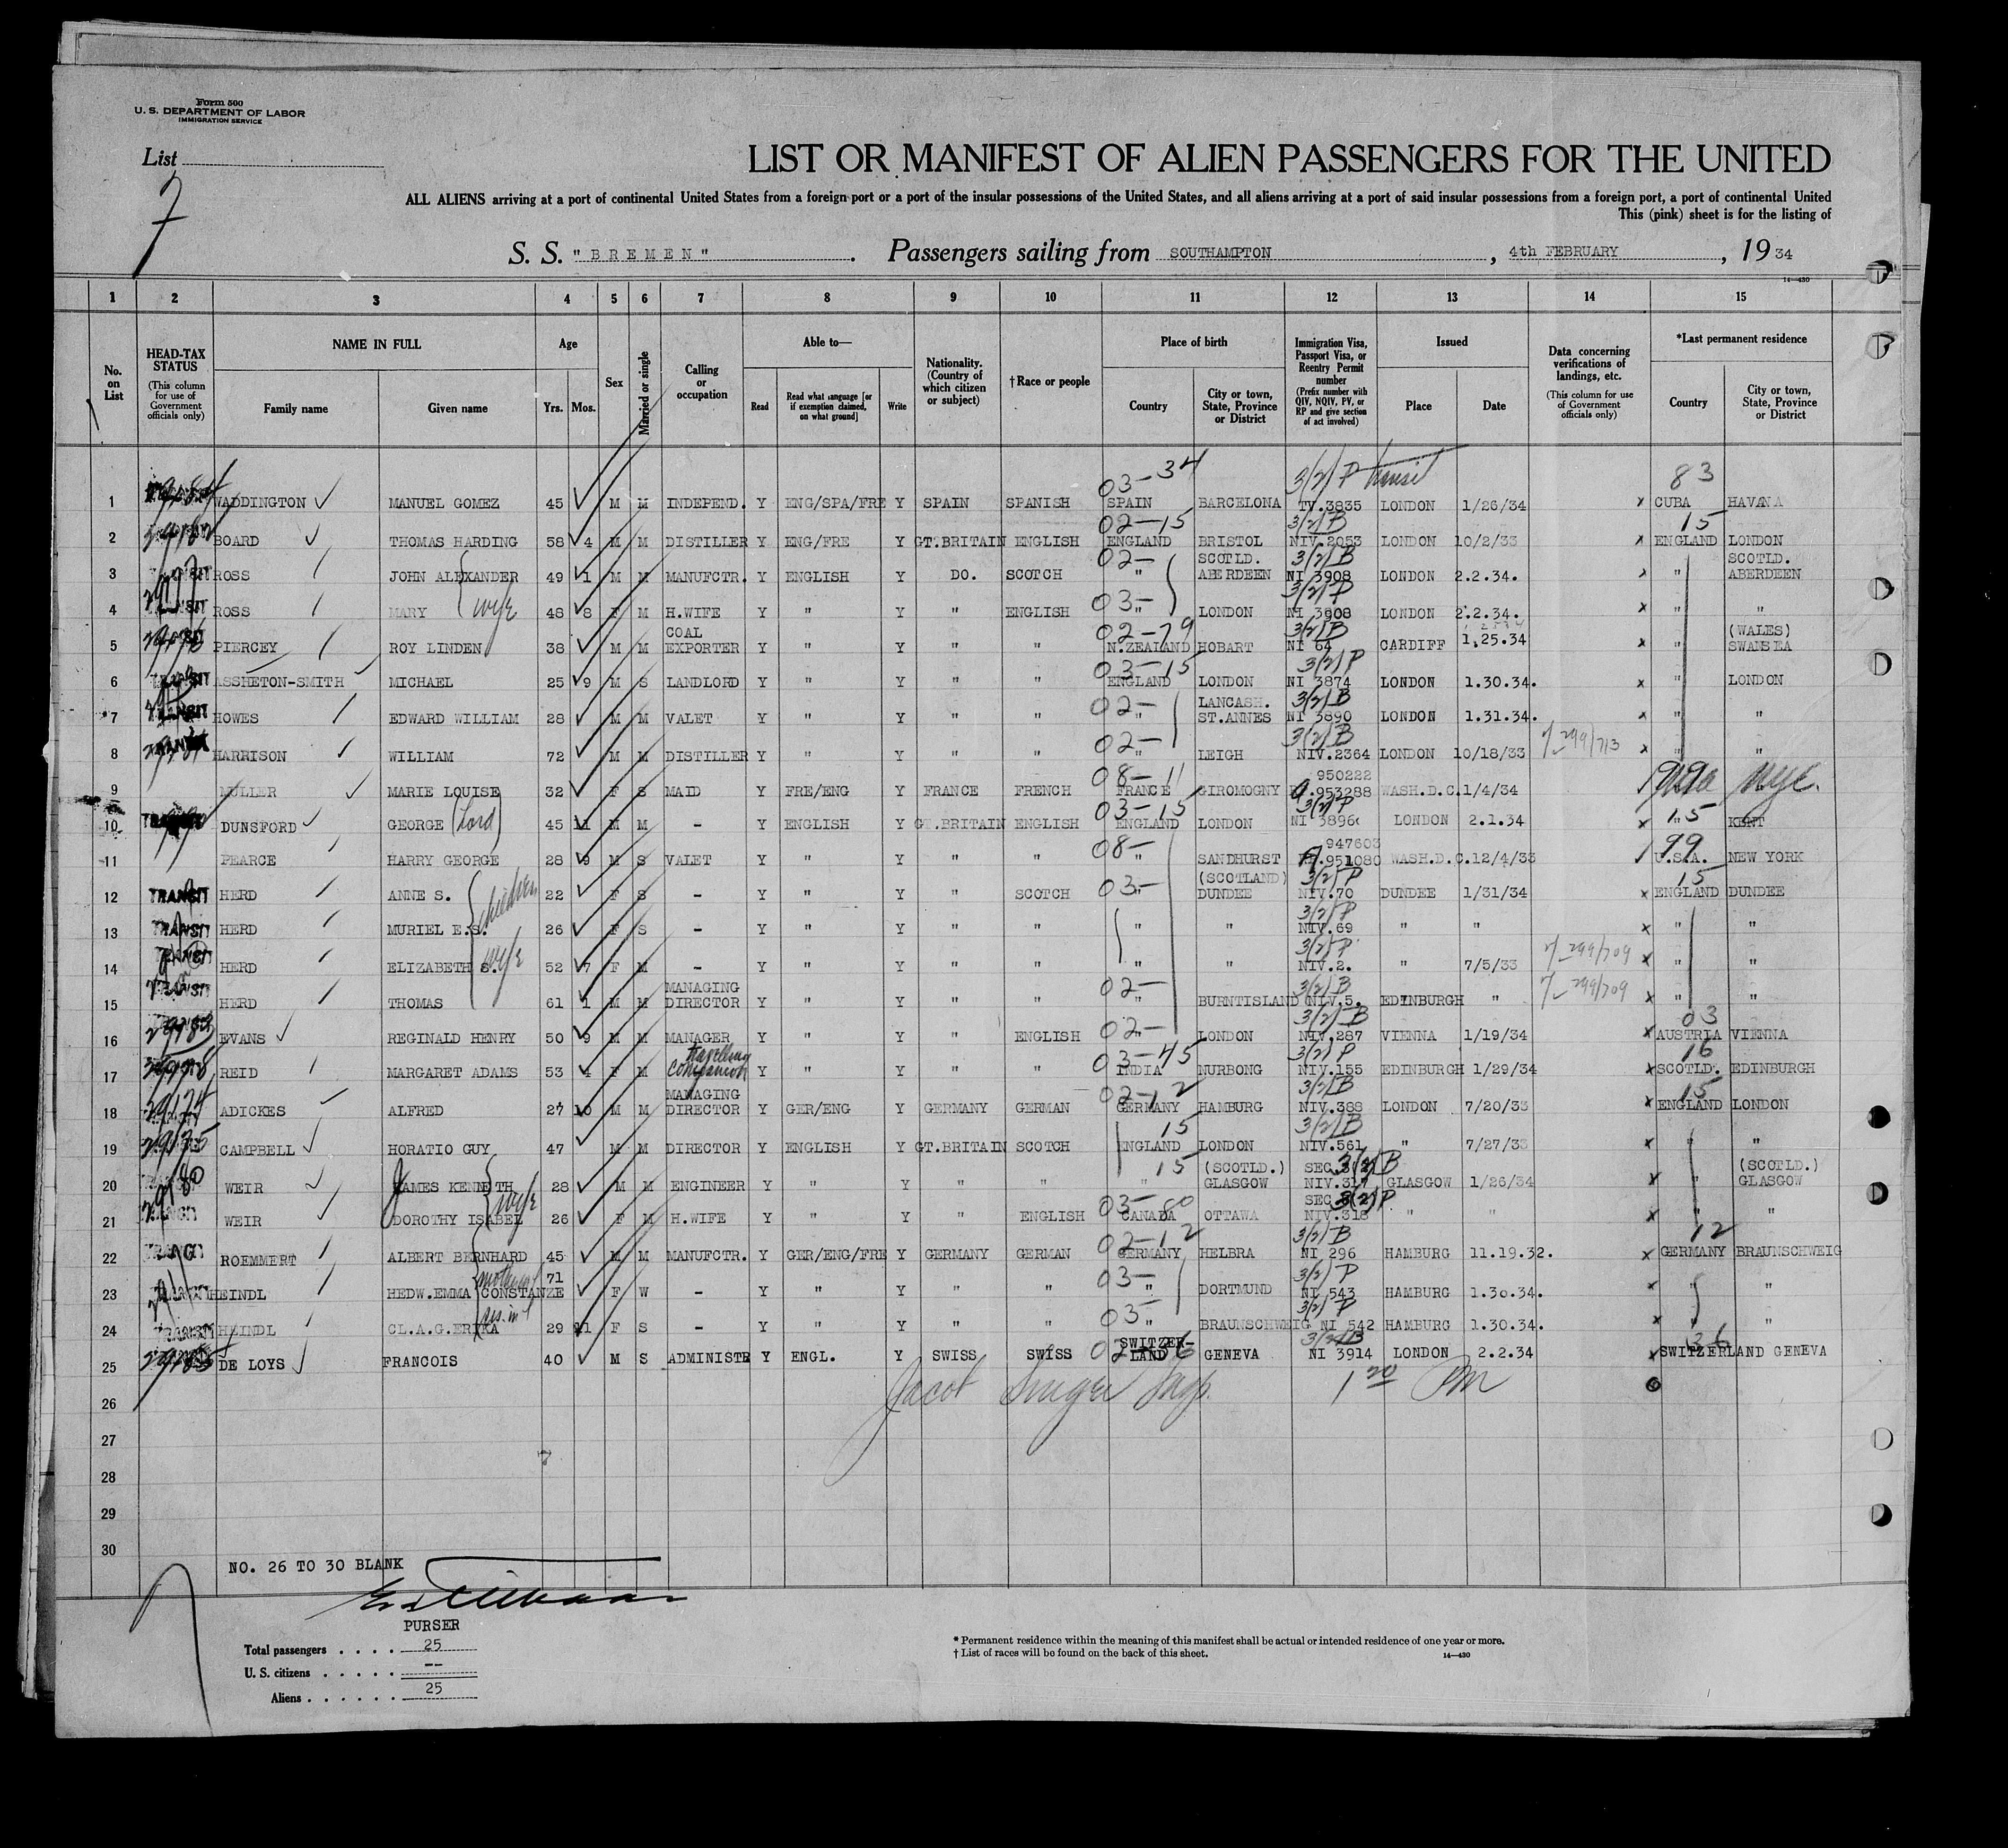 Form 500
U. S. DEPARTMENT OF LABOR
IMMIGRATION SERVICE
List
7
LIST OR MANIFEST OF ALIEN PASSENGERS FOR THE UNITED
ALL ALIENS arriving at a port of continental United States from a foreign port or a port of the insular possessions of the United States, and all aliens arriving at a port of said insular possessions from a foreign port, a port of continental United
This (pink) sheet is for the listing of
S. S. "BREMEN". Passengers sailing from SOUTHAMPTON, 4th FEBRUARY, 1934
14—430
1 2 3 4 5 6 7 8 9 10 11 12 13 14 15
No. on List
HEAD-TAX STATUS (This column for use of Government officials only)
NAME IN FULL Family name Given name
Age Yrs. Mos.
Sex
Married or single
Calling or occupation
Able to— Read Read what language [or if exemption claimed, on what ground] Write
Nationality. (Country of which citizen or subject)
†Race or people
Place of birth Country City or town, State, Province or District
Immigration Visa, Passport Visa, or Reentry Permit number (Prefix number with QIV, NQIV, PV, or RP and give section of act involved)
Issued Place Date
Data concerning verifications of landings, etc. (This column for use of Government officials only)
*Last permanent residence Country City or town, State, Province or District
03-34 3(2) P transit 83
1 WADDINGTON MANUEL GOMEZ 45 M M INDEPEND. Y ENG/SPA/FRE Y SPAIN SPANISH SPAIN BARCELONA TV.3835 LONDON 1/26/34 x CUBA HAVANA
02-15 3(2) B 15
2 BOARD THOMAS HARDING 58 4 M M DISTILLER Y ENG/FRE Y GT.BRITAIN ENGLISH ENGLAND BRISTOL NIV.2053 LONDON 10/2/33 x ENGLAND LONDON
02- SCOTLD. 3(2) B SCOTLD.
3 ROSS JOHN ALEXANDER 49 1 M M MANUFCTR. Y ENGLISH Y DO. SCOTCH " ABERDEEN NI 3908 LONDON 2.2.34. x " ABERDEEN
03- 3(2) P
4 TRANSIT ROSS MARY wife 48 8 F M H.WIFE Y " Y " ENGLISH " LONDON NI 3908 LONDON 2.2.34. x " "
COAL 02-79 3(2) B (WALES)
5 PIERCEY ROY LINDEN 38 M M EXPORTER Y " Y " " N.ZEALAND HOBART NI 64 CARDIFF 1.25.34 x " SWANSEA
03-15 3(2) P
6 TRANSIT ASSHETON-SMITH MICHAEL 25 9 M S LANDLORD Y " Y " " ENGLAND LONDON NI 3874 LONDON 1.30.34. x " LONDON
02- LANCASH. 3(2) B
7 TRANSIT HOWES EDWARD WILLIAM 28 M M VALET Y " Y " " " ST.ANNES NI 3890 LONDON 1.31.34. x " "
02- 3(2) B
8 HARRISON WILLIAM 72 M M DISTILLER Y " Y " " " LEIGH NIV.2364 LONDON 10/18/33 299/713 x " "
08-11 950222
9 MULLER MARIE LOUISE 32 F S MAID Y FRE/ENG Y FRANCE FRENCH FRANCE GIROMOGNY 953288 WASH.D.C. 1/4/34 NYC.
03-15 3(2) P 15
10 DUNSFORD GEORGE (Lord) 45 11 M M - Y ENGLISH Y GT.BRITAIN ENGLISH ENGLAND LONDON NI 3896 LONDON 2.1.34 x " KENT
08- 947603 99
11 PEARCE HARRY GEORGE 28 9 M S VALET Y " Y " " " SANDHURST 951080 WASH.D.C. 12/4/33 U.S.A. NEW YORK
03- (SCOTLAND) 3(2) P 15
12 TRANSIT HERD ANNE S. children 22 F S - Y " Y " SCOTCH " DUNDEE NIV.70 DUNDEE 1/31/34 x ENGLAND DUNDEE
3(2) P
13 TRANSIT HERD MURIEL E.S. 26 F S - Y " Y " " " " NIV.69 " " x " "
3(2) P
14 TRANSIT HERD ELIZABETH S. wife 52 7 F M - Y " Y " " " " NIV.2. " 7/5/33 299/709 x " "
MANAGING 02- 3(2) B
15 TRANSIT HERD THOMAS 61 1 M M DIRECTOR Y " Y " " " BURNTISLAND NIV.5. EDINBURGH " 299/709 x " "
02- 3(2) B 03
16 EVANS REGINALD HENRY 50 9 M M MANAGER Y " Y " ENGLISH " LONDON NIV.287 VIENNA 1/19/34 x AUSTRIA VIENNA
travelling 03-45 3(2) P 16
17 REID MARGARET ADAMS 53 4 F M companion Y " Y " " INDIA NURBONG NIV.155 EDINBURGH 1/29/34 x SCOTLD. EDINBURGH
MANAGING 02-12 3(2) B 15
18 ADICKES ALFRED 27 10 M M DIRECTOR Y GER/ENG Y GERMANY GERMAN GERMANY HAMBURG NIV.388 LONDON 7/20/33 x ENGLAND LONDON
15 3(2) B
19 CAMPBELL HORATIO GUY 47 M M DIRECTOR Y ENGLISH Y GT.BRITAIN SCOTCH ENGLAND LONDON NIV.561 " 7/27/33 x " "
15 (SCOTLD.) SEC. 3(2) B (SCOTLD.)
20 WEIR JAMES KENNETH 28 M M ENGINEER Y " Y " " " GLASGOW NIV.317 GLASGOW 1/26/34 x " GLASGOW
03-80 SEC 3(2) P
21 WEIR DOROTHY ISABEL wife 26 F M H.WIFE Y " Y " ENGLISH CANADA OTTAWA NIV.318 " " x " "
02-12 3(2) B 12
22 ROEMMERT ALBERT BERNHARD 45 M M MANUFCTR. Y GER/ENG/FRE Y GERMANY GERMAN GERMANY HELBRA NI 296 HAMBURG 11.19.32. x GERMANY BRAUNSCHWEIG
71 03- 3(2) P
23 HEINDL HEDW.EMMA CONSTANZE F W - Y " Y " " " DORTMUND NI 543 HAMBURG 1.30.34. x " "
03- 3(2) P
24 HEINDL CL.A.G.ERIKA 29 11 F S - Y " Y " " " BRAUNSCHWEIG NI 542 HAMBURG 1.30.34. x " "
02 36 SWITZER- 3(2) B 36
25 DE LOYS FRANCOIS 40 M S ADMINISTR Y ENGL. Y SWISS SWISS LAND GENEVA NI 3914 LONDON 2.2.34 x SWITZERLAND GENEVA
26
27
28
29
30
NO. 26 TO 30 BLANK
PURSER
Total passengers . . . . 25
U. S. citizens . . . . . --
Aliens . . . . . . 25
* Permanent residence within the meaning of this manifest shall be actual or intended residence of one year or more.
† List of races will be found on the back of this sheet.
14—430